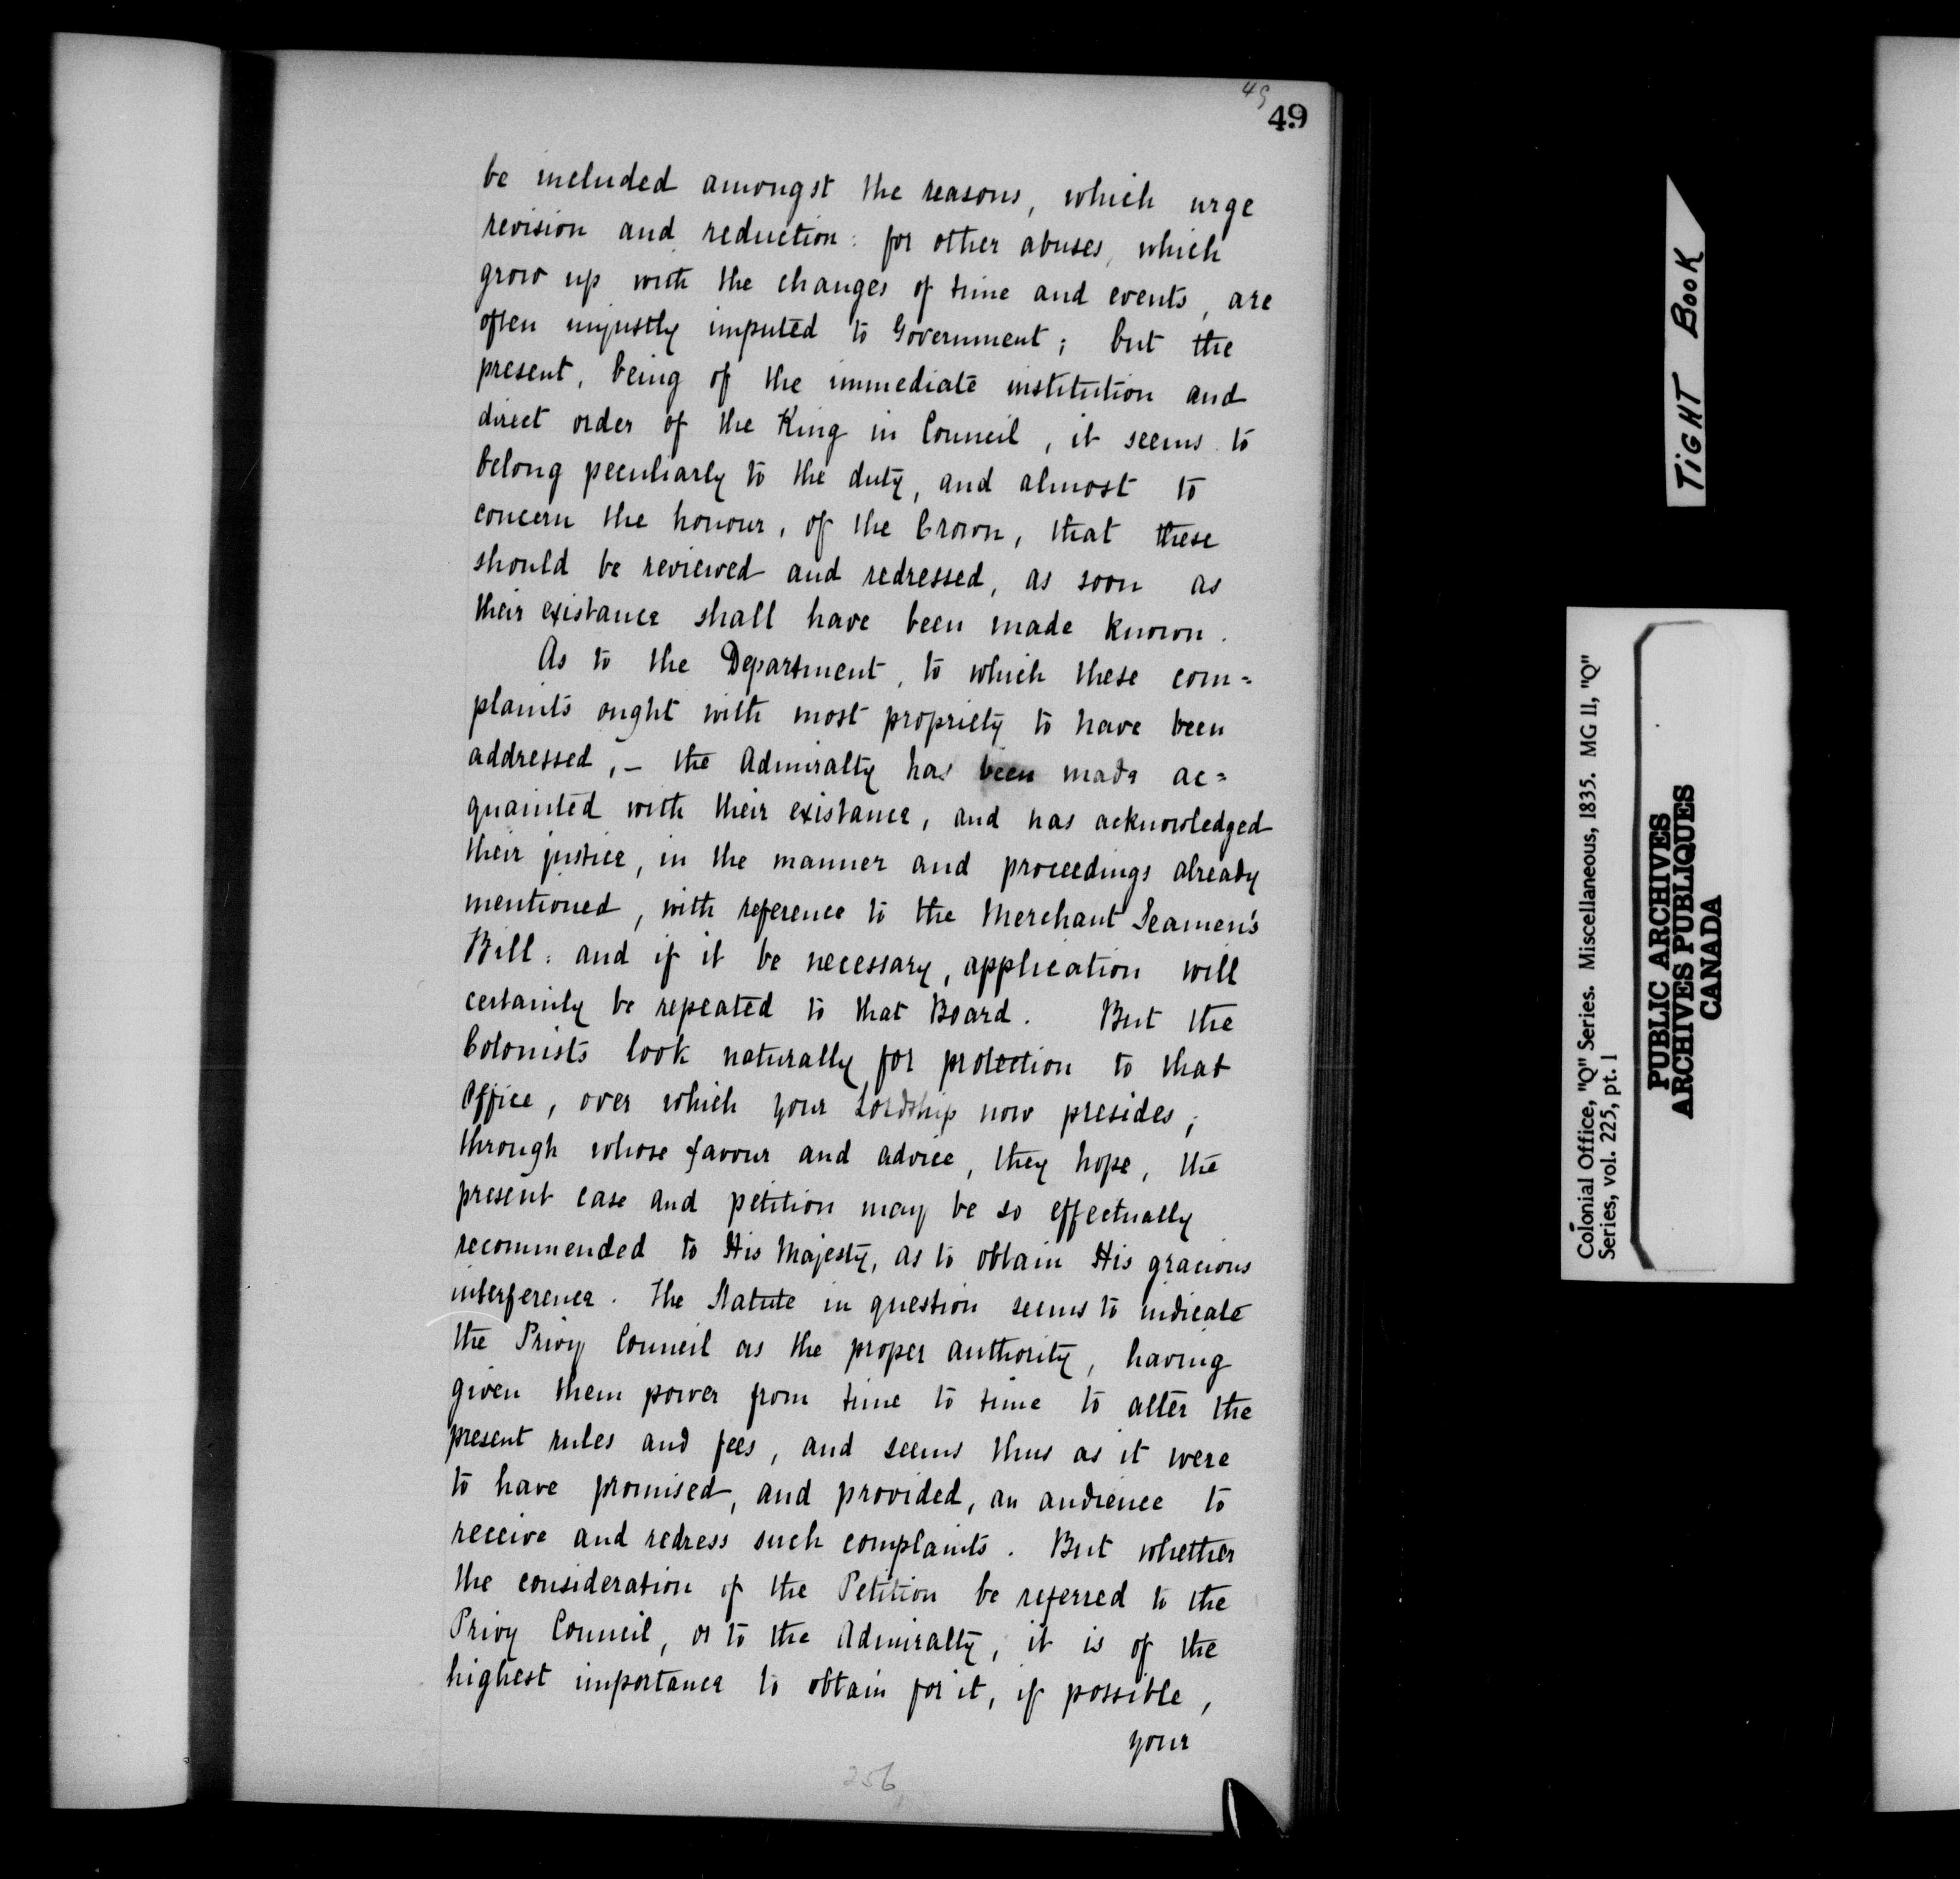 49
49
be included amongst the reasons, which urge
revision and reduction: for other abuses, which
grow up with the changes of time and events, are
often unjustly imputed to Government; but the
present, being of the immediate institution and
direct order of the King in Council, it seems to
belong peculiarly to the duty, and almost to
concern the honour, of the Crown, that these
should be reviewed and redressed, as soon as
their existance shall have been made known.
As to the Department, to which these com=
plaints ought with most propriety to have been
addressed, – the Admiralty has been made ac=
quainted with their existance, and has acknowledged
their justice, in the manner and proceedings already
mentioned, with reference to the Merchant Seamen's
Bill: and if it be necessary, application will
certainly be repeated to that Board. But the
Colonists look naturally for protection to that
Office, over which your Lordship now presides;
through whose favour and advice, they hope, the
present case and petition may be so effectually
recommended to His Majesty, as to obtain His gracious
interference. The Statute in question seems to indicate
the Privy Council as the proper authority, having
given them power from time to time to alter the
present rules and fees, and seems thus as it were
to have promised, and provided, an audience to
receive and redress such complaints. But whether
the consideration of the Petition be referred to the
Privy Council, or to the Admiralty, it is of the
highest importance to obtain for it, if possible,
your
256
TIGHT BOOK
Colonial Office, "Q" Series. Miscellaneous, 1835. MG 11, "Q"
Series, vol. 225, pt. 1
PUBLIC ARCHIVES
ARCHIVES PUBLIQUES
CANADA